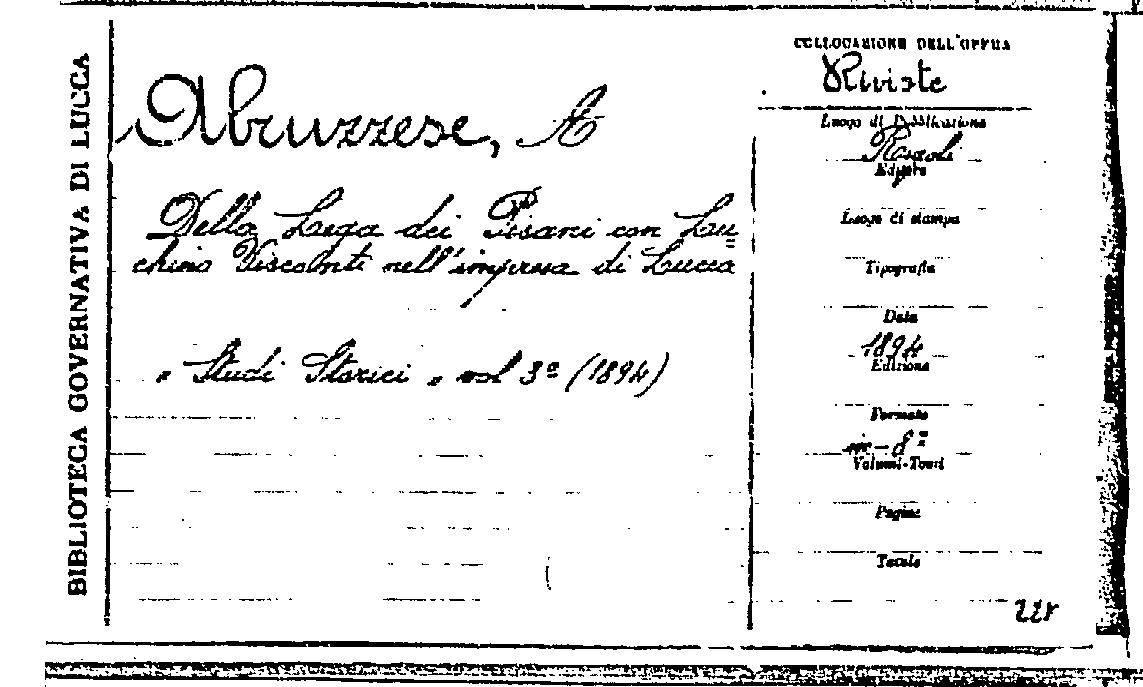 BIBLIOTECA GOVERNATIVA DI LUCCA
Abruzzese, A
Della Lega dei Pisani con Lu=
chino Visconti nell'impresa di Lucca
" Studi Storici " vol 3º (1894)
COLLOCAZIONE DELL'OPERA
Riviste
Luogo di Pubblicazione
Editore
Luogo di stampa
Tipografia
Data
1894
Edizione
Formato
in-8º
Volumi-Tomi
Pagine
Tavole